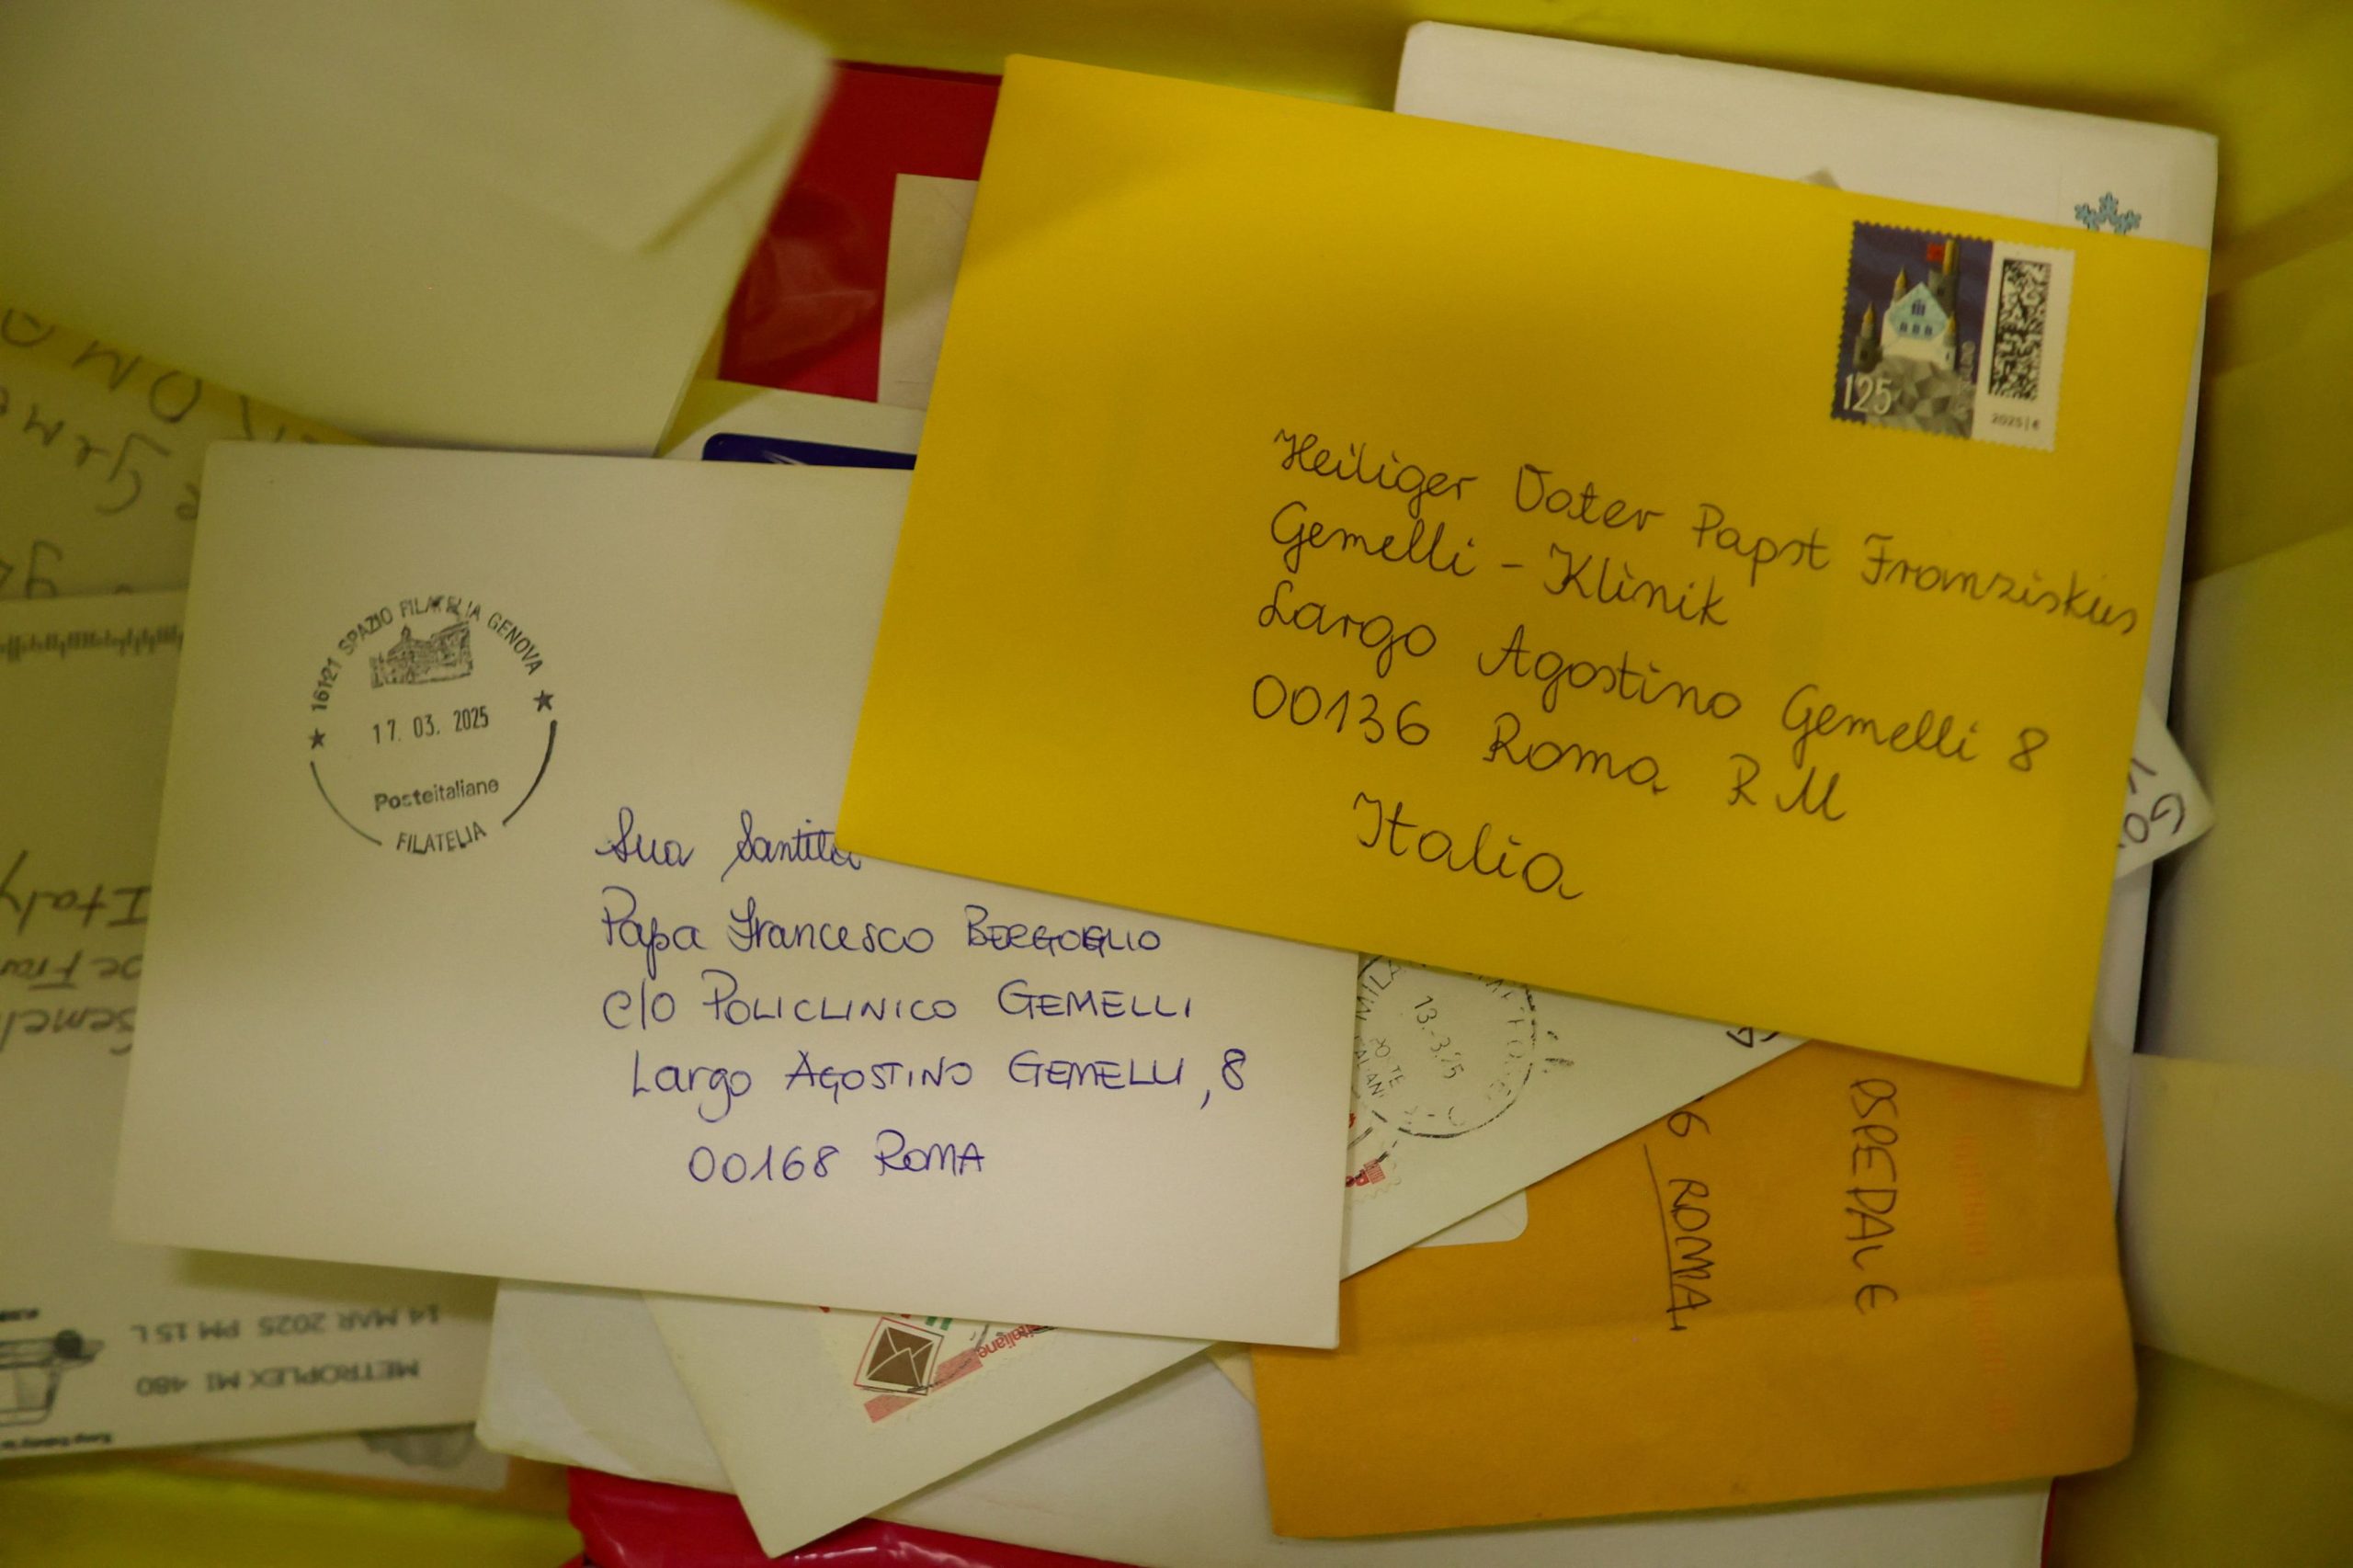 125
2025 | €
Heiliger Vater Papst Franziskus
Gemelli - Klinik
Largo Agostino Gemelli 8
00136 Roma RM
Italia
16121 SPAZIO FILATELIA GENOVA
17. 03. 2025
Posteitaliane
FILATELIA
Sua Santità
Papa Francesco BERGOGLIO
c/o POLICLINICO GEMELLI
Largo AGOSTINO GEMELLI, 8
00168 ROMA
13.-3.25
OSPEDALE
6 ROMA
Italy
METROPLEX MI 480
14 MAR 2025 PM 15 L